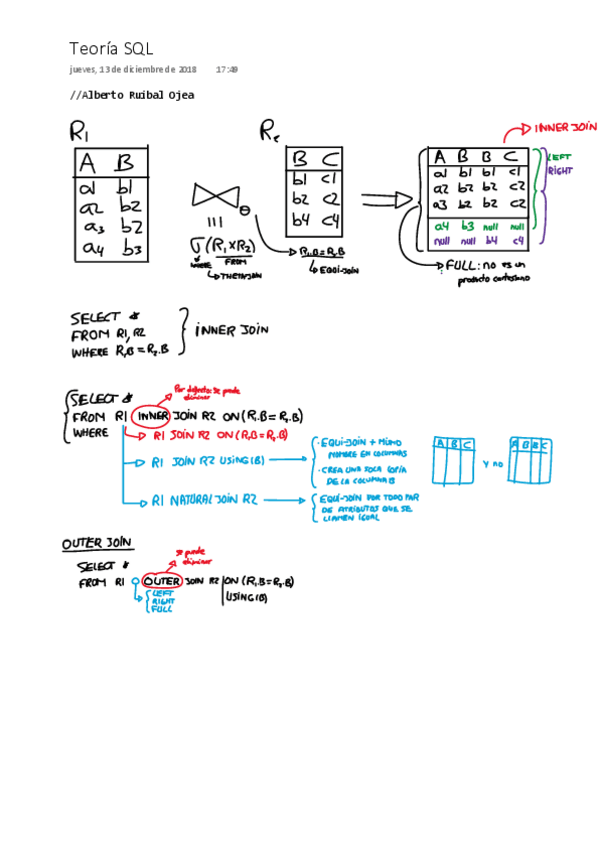 Teoría SQL
jueves, 13 de diciembre de 2018 17:49
//Alberto Ruibal Ojea
R1
A B
a1 b1
a2 b2
a3 b2
a4 b3
⋈θ
III
σ(R1xR2)
WHERE FROM
THETAJOIN
R2
B C
b1 c1
b2 c2
b4 c4
R1.B=R2.B
EQUI-JOIN
INNER JOIN
A B B C
a1 b1 b1 c1
a2 b2 b2 c2
a3 b2 b2 c2
a4 b3 null null
null null b4 c4
LEFT
RIGHT
FULL: no es un
producto cartesiano
SELECT *
FROM R1, R2
WHERE R1.B=R2.B
INNER JOIN
Por defecto: se puede
eliminar
SELECT *
FROM R1 INNER JOIN R2 ON(R1.B=R2.B)
WHERE
R1 JOIN R2 ON(R1.B=R2.B)
R1 JOIN R2 USING(B)
· EQUI-JOIN + MISMO
NOMBRE EN COLUMNAS
· CREA UNA SOLA COPIA
DE LA COLUMNA B
A B C
y no
A B B C
R1 NATURAL JOIN R2
EQUI-JOIN POR TODO PAR
DE ATRIBUTOS QUE SE
LLAMEN IGUAL
OUTER JOIN
se puede
eliminar
SELECT *
FROM R1 OUTER JOIN R2 ON(R1.B=R2.B)
USING(B)
LEFT
RIGHT
FULL